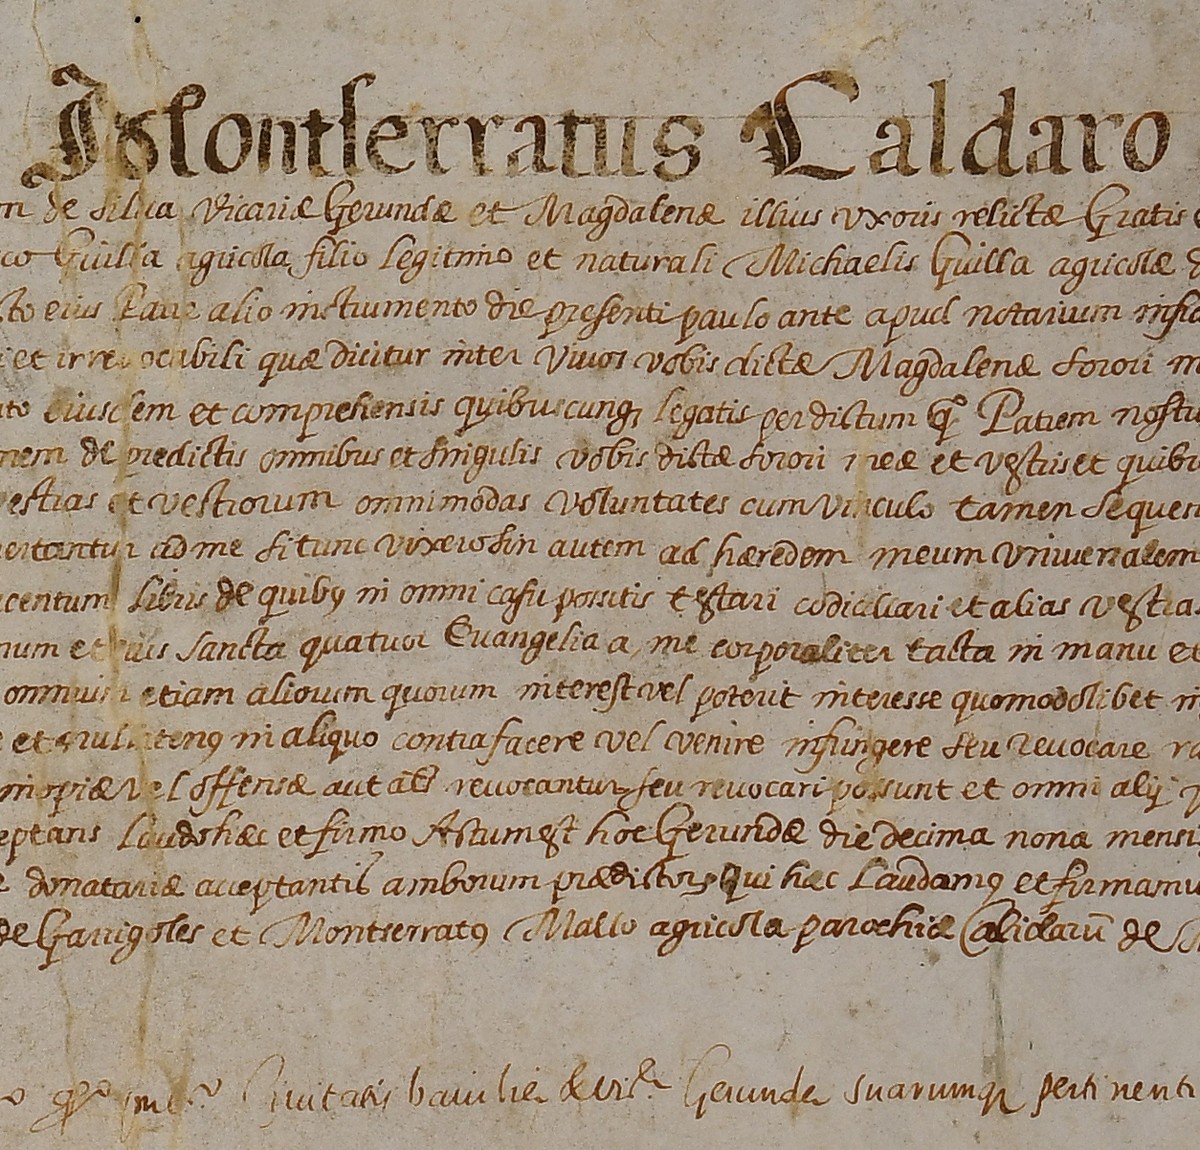 Montserratus Caldaro
de Silva Vicariæ Gerundæ et Magdalenæ illius uxoris relictæ Gratis
Guilla agricola filio legitimo et naturali Michaelis Guilla agricolæ
eius Patre alio instrumento die presenti paulo ante apud notarium
et irrevocabili quæ dicitur inter vivos vobis dictæ Magdalenæ sorori
eiusdem et comprehensis quibuscunq legatis per dictum qm Patrem
de predictis omnibus et singulis vobis dictæ sorori meæ et vestris et
vestras et vestrorum omnimodas voluntates cum vinculo tamen
ad me si tunc vixero sin autem ad hæredem meum universalem
libris de quibus in omni casu possitis testari codicillari et alias
et eius sancta quatuor Evangelia a me corporaliter tacta in manu et
omnium etiam aliorum quorum interest vel poterit interesse quomodolibet
et nullatenus in aliquo contrafacere vel venire infringere seu revocare
inopiæ vel offensæ aut als revocantur seu revocari possunt et omni alij
Laudo hæc et firmo Actum est hoc Gerundæ die decima nona
donatariæ acceptantis amborum prædictorum Qui hæc Laudamus et
de Garrigoles et Montserratus Mallo agricola parochiæ Calidarū de
Civitatis baiulie & vicrie Gerunde suarumq